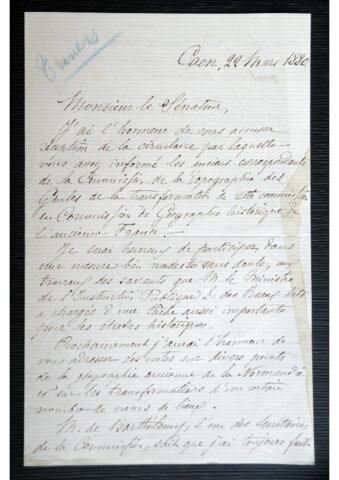 Caen, 22 Mars 1880
Monsieur le Sénateur,
J'ai l'honneur de vous accuser
réception de la circulaire par laquelle
vous avez informé les anciens correspondants
de la Commission de la Topographie des
Gaules de la transformation de cette commission
en Commission de Géographie historique de
l'ancienne France.
Je serai heureux de participer, dans
une mesure bien modeste sans doute, aux
travaux des savants que M. le Ministre
de l'Instruction Publique & des Beaux Arts
a chargés d'une tâche aussi importante
pour les études historiques.
Prochainement j'aurai l'honneur de
vous adresser des notes sur divers points
de la géographie ancienne de la Normandie
et sur les transformations d'un certain
nombre de noms de lieux.
M. de Barthélemy, l'un des Secrétaires
de la Commission, sait que j'ai toujours fait